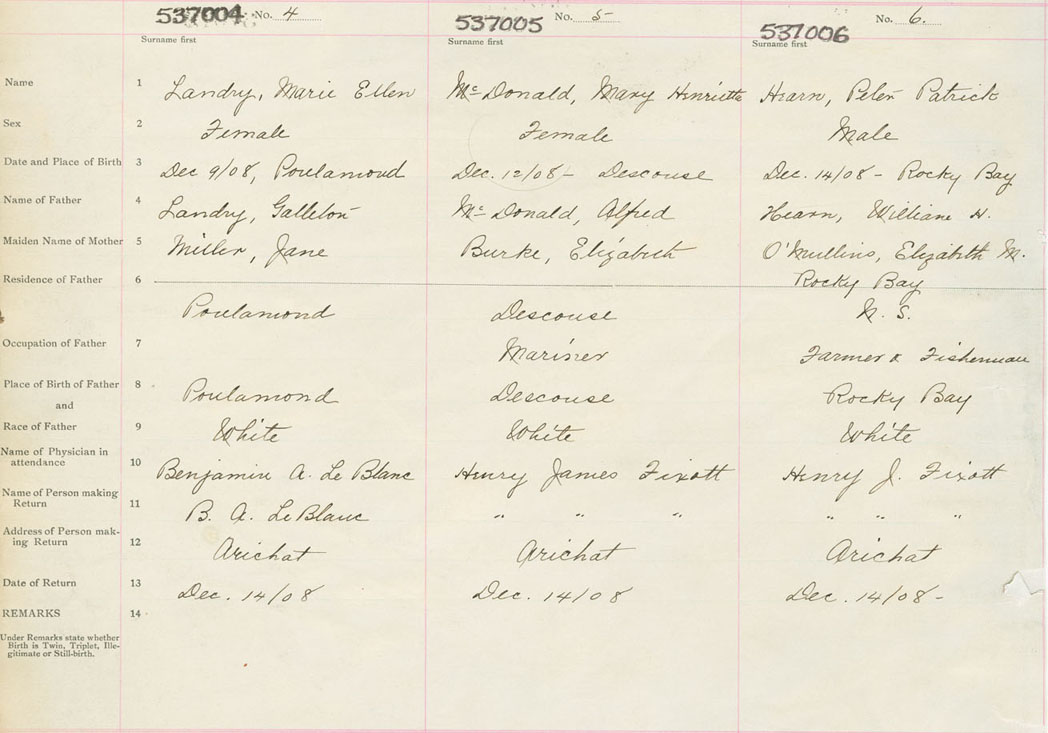 537004 No. 4 537005 No. 5 537006 No. 6.
Surname first Surname first Surname first
Name 1 Landry, Marie Ellen McDonald, Mary Henriette Hearn, Peter Patrick
Sex 2 Female Female Male
Date and Place of Birth 3 Dec 9/08, Poulamond Dec. 12/08 - Descouse Dec. 14/08 - Rocky Bay
Name of Father 4 Landry, McDonald, Alfred Hearn, William H.
Maiden Name of Mother 5 Miller, Jane Burke, Elizabeth O'Mullins, Elizabeth M.
Residence of Father 6 Rocky Bay
Poulamond Descouse N. S.
Occupation of Father 7 Mariner Farmer & Fisherman
Place of Birth of Father 8 Poulamond Descouse Rocky Bay
and
Race of Father 9 White White White
Name of Physician in
attendance 10 Benjamin A. Le Blanc Henry James Fixott Henry J. Fixott
Name of Person making
Return 11 B. A. LeBlanc " " " " " "
Address of Person mak-
ing Return 12 Arichat Arichat Arichat
Date of Return 13 Dec. 14/08 Dec. 14/08 Dec. 14/08 -
REMARKS 14
Under Remarks state whether
Birth is Twin, Triplet, Ille-
gitimate or Still-birth.